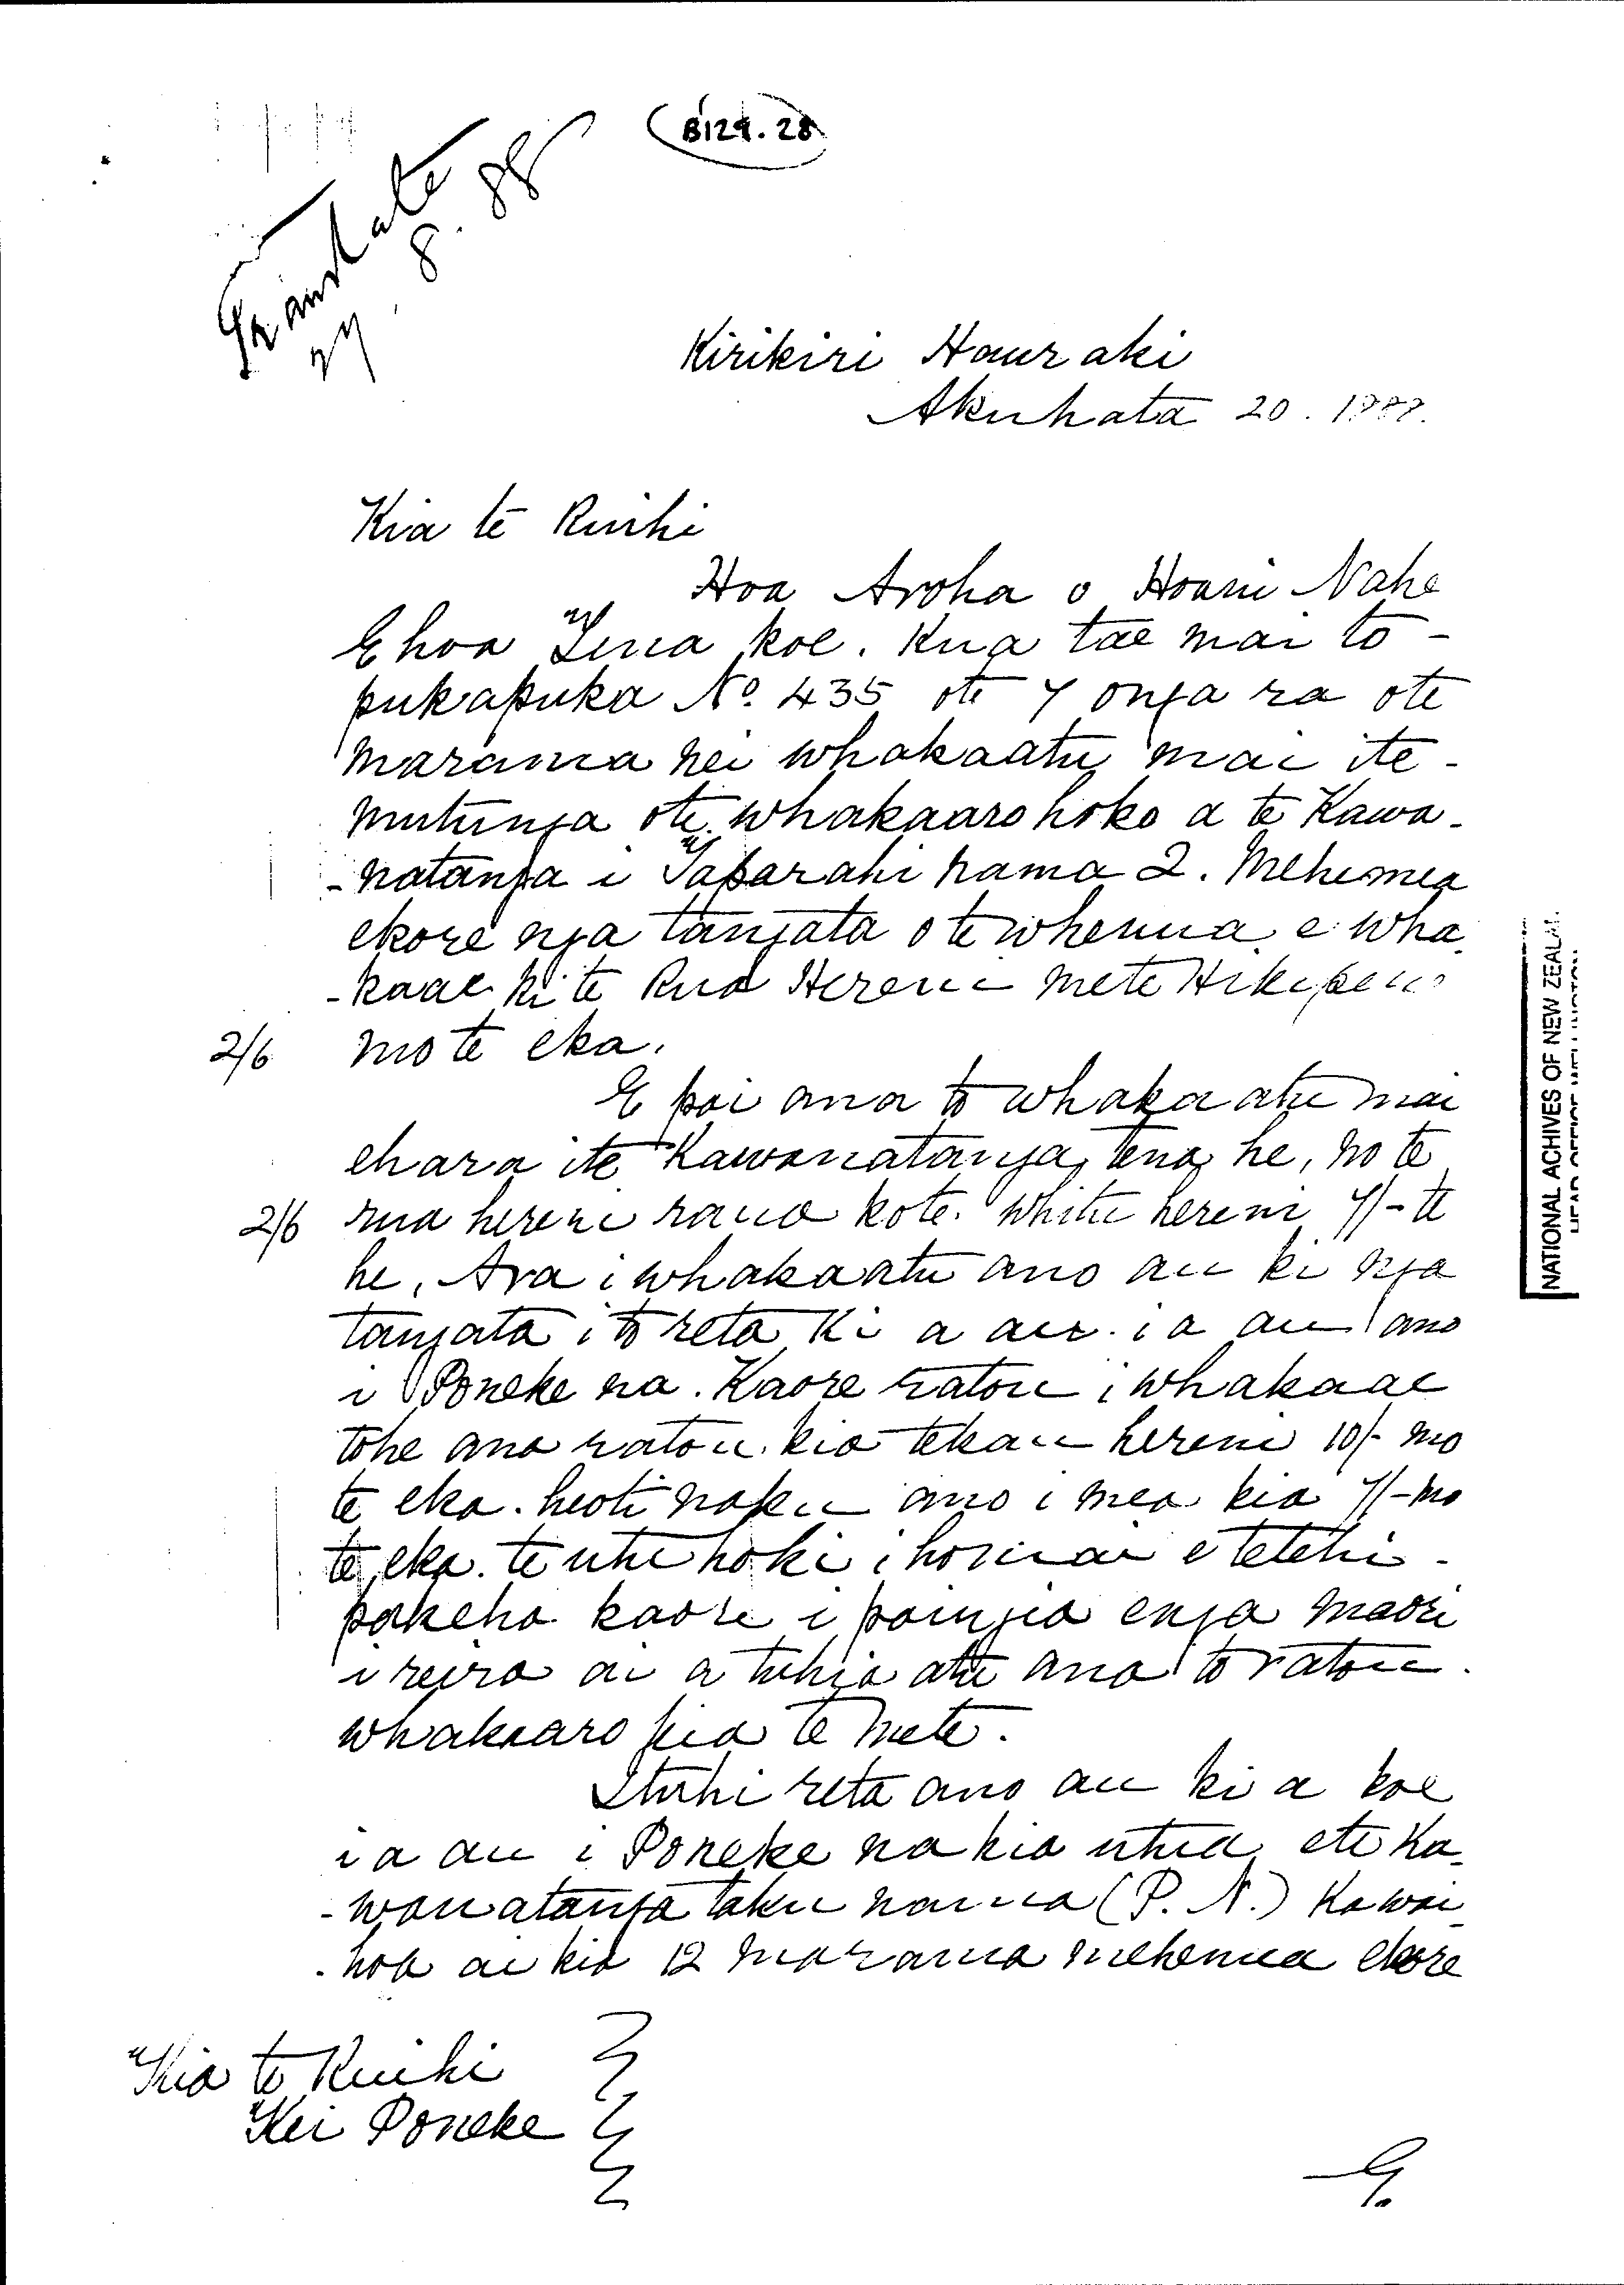 B129.28
Translate
27.8.88
Kirikiri Hauraki
Akuhata 20. 1888.
Kia te Ruihi
Hoa Aroha o Hoani Nahe
E hoa Tena koe. Kua tae mai to -
pukapuka No. 435 ote 7 onga ra ote
marama nei whakaatu mai ite -
mutunga ote whakaaro hoko a te Kawa -
- natanga i Taparahi nama 2. Mehemea
ekore nga tangata o te whenua e wha
- kaae ki te Rua Hereni mete Hikipene
2/6 mo te eka.
E pai ana to whakaatu mai
ehara ite Kawanatanga, tena he, no te
2/6 rua hereni raua kote. whitu hereni 7/- te
he, Ara i whakaatu ano au ki nga
tangata i to reta ki a au. i a au ano
i Poneke na. Kaore ratou i whakaae
tohe ana ratou. kia tekau hereni 10/- mo
te eka. heoti naku ano i mea kia 7/- mo
te eka. te utu hoki i homai e tetehi -
pakeha kaore i paingia enga maori
i reira ai a tuhia atu ana to ratou.
whakaaro kia te Mete.
I tuhi reta ano au ki a koe
i a au i Poneke na kia utua ete Ka
- wanatanga taku nama (P. N.) Kawai
- hoa ai kia 12 marama mehemea ekore
Kia te Ruihi
Kei Poneke
NATIONAL ACHIVES OF NEW ZEALAN